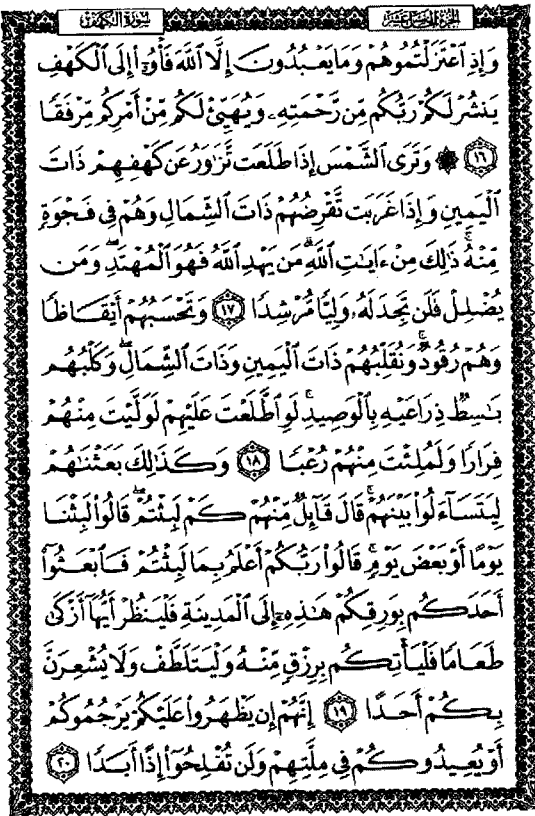 سورة الكهف
الجزء الخامس عشر
وَإِذِ ٱعْتَزَلْتُمُوهُمْ وَمَا يَعْبُدُونَ إِلَّا ٱللَّهَ فَأْوُۥٓا۟ إِلَى ٱلْكَهْفِ
يَنشُرْ لَكُمْ رَبُّكُم مِّن رَّحْمَتِهِۦ وَيُهَيِّئْ لَكُم مِّنْ أَمْرِكُم مِّرْفَقًا
١٦ ۞ وَتَرَى ٱلشَّمْسَ إِذَا طَلَعَت تَّزَٰوَرُ عَن كَهْفِهِمْ ذَاتَ
ٱلْيَمِينِ وَإِذَا غَرَبَت تَّقْرِضُهُمْ ذَاتَ ٱلشِّمَالِ وَهُمْ فِى فَجْوَةٍ
مِّنْهُ ۚ ذَٰلِكَ مِنْ ءَايَٰتِ ٱللَّهِ ۗ مَن يَهْدِ ٱللَّهُ فَهُوَ ٱلْمُهْتَدِ ۖ وَمَن
يُضْلِلْ فَلَن تَجِدَ لَهُۥ وَلِيًّا مُّرْشِدًا ١٧ وَتَحْسَبُهُمْ أَيْقَاظًا
وَهُمْ رُقُودٌ ۚ وَنُقَلِّبُهُمْ ذَاتَ ٱلْيَمِينِ وَذَاتَ ٱلشِّمَالِ ۖ وَكَلْبُهُم
بَٰسِطٌ ذِرَاعَيْهِ بِٱلْوَصِيدِ ۚ لَوِ ٱطَّلَعْتَ عَلَيْهِمْ لَوَلَّيْتَ مِنْهُمْ
فِرَارًا وَلَمُلِئْتَ مِنْهُمْ رُعْبًا ١٨ وَكَذَٰلِكَ بَعَثْنَٰهُمْ
لِيَتَسَآءَلُوا۟ بَيْنَهُمْ ۚ قَالَ قَآئِلٌ مِّنْهُمْ كَمْ لَبِثْتُمْ ۖ قَالُوا۟ لَبِثْنَا
يَوْمًا أَوْ بَعْضَ يَوْمٍ ۚ قَالُوا۟ رَبُّكُمْ أَعْلَمُ بِمَا لَبِثْتُمْ فَٱبْعَثُوٓا۟
أَحَدَكُم بِوَرِقِكُمْ هَٰذِهِۦٓ إِلَى ٱلْمَدِينَةِ فَلْيَنظُرْ أَيُّهَآ أَزْكَىٰ
طَعَامًا فَلْيَأْتِكُم بِرِزْقٍ مِّنْهُ وَلْيَتَلَطَّفْ وَلَا يُشْعِرَنَّ
بِكُمْ أَحَدًا ١٩ إِنَّهُمْ إِن يَظْهَرُوا۟ عَلَيْكُمْ يَرْجُمُوكُمْ
أَوْ يُعِيدُوكُمْ فِى مِلَّتِهِمْ وَلَن تُفْلِحُوٓا۟ إِذًا أَبَدًا ٢٠